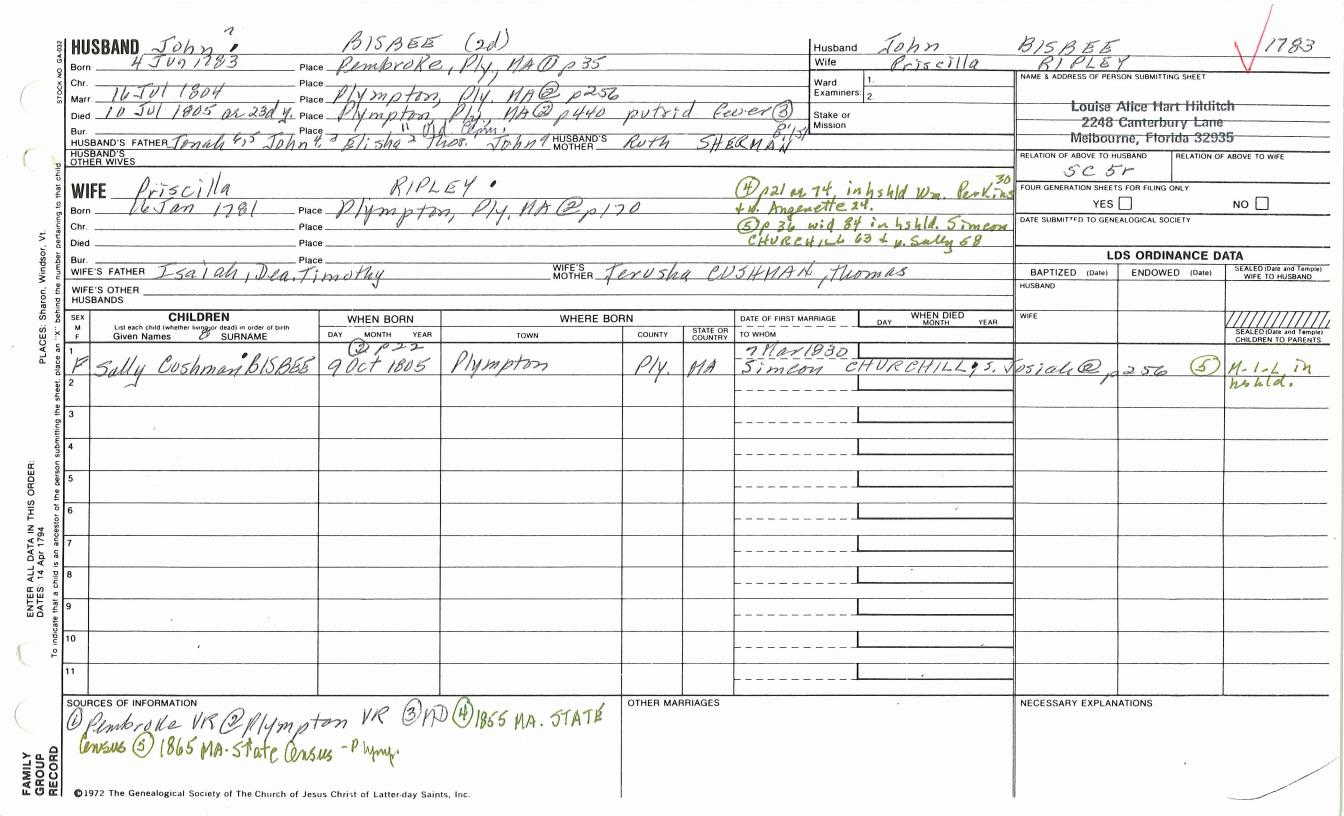 HUSBAND John BISBEE (2d)
Born 4 Jun 1783 Place Pembroke, Ply, MA ① p35
Chr. Place
Marr 16 Jul 1804 Place Plympton, Ply. MA ② p256
Died 10 Jul 1805 or 23d y. Place Plympton, Ply, MA ② p440 putrid fever ③
Bur. Place " Old
HUSBAND'S FATHER Jonah John Elisha Thos. John HUSBAND'S MOTHER Ruth SHERMAN
HUSBAND'S OTHER WIVES
WIFE Priscilla RIPLEY
Born 16 Jan 1781 Place Plympton, Ply. MA ② p170
Chr. Place
Died Place
Bur. Place
④ p21 as 74, in hshld Wm. Perkins 30
+ w. Angenette 24.
⑤ p 36 wid 84 in hshld. Simeon
CHURCHILL 63 + w. Sally 58
WIFE'S FATHER Isaiah, Dea. Timothy WIFE'S MOTHER Jerusha CUSHMAN, Thomas
WIFE'S OTHER HUSBANDS
Husband John BISBEE 1783
Wife Priscilla RIPLEY
Ward 1.
Examiners: 2.
Stake or
Mission
NAME & ADDRESS OF PERSON SUBMITTING SHEET
Louise Alice Hart Hilditch
2248 Canterbury Lane
Melbourne, Florida 32935
RELATION OF ABOVE TO HUSBAND RELATION OF ABOVE TO WIFE
5C 5r
FOUR GENERATION SHEETS FOR FILING ONLY
YES NO
DATE SUBMITTED TO GENEALOGICAL SOCIETY
LDS ORDINANCE DATA
BAPTIZED (Date) ENDOWED (Date) SEALED (Date and Temple) WIFE TO HUSBAND
HUSBAND
WIFE
SEALED (Date and Temple) CHILDREN TO PARENTS
SEX M F
CHILDREN
List each child (whether living or dead) in order of birth
Given Names SURNAME
WHEN BORN
DAY MONTH YEAR
WHERE BORN
TOWN COUNTY STATE OR COUNTRY
DATE OF FIRST MARRIAGE
TO WHOM
WHEN DIED
DAY MONTH YEAR
1 ② p22 7 Mar 1830
F Sally Cushman BISBEE 9 Oct 1805 Plympton Ply. MA Simeon CHURCHILL, s. Josiah ② p256 ⑤ M-I-L in
hshld.
2
3
4
5
6
7
8
9
10
11
SOURCES OF INFORMATION
① Pembroke VR ② Plympton VR ③ MD ④ 1855 MA. STATE
Census ⑤ 1865 MA. State Census - Plym.
OTHER MARRIAGES
NECESSARY EXPLANATIONS
©1972 The Genealogical Society of The Church of Jesus Christ of Latter-day Saints, Inc.
STOCK NO. GA-032
PLACES: Sharon, Windsor, Vt.
ENTER ALL DATA IN THIS ORDER:
DATES: 14 Apr 1794
To indicate that a child is an ancestor of the person submitting the sheet, place an "X" behind the number pertaining to that child.
FAMILY
GROUP
RECORD